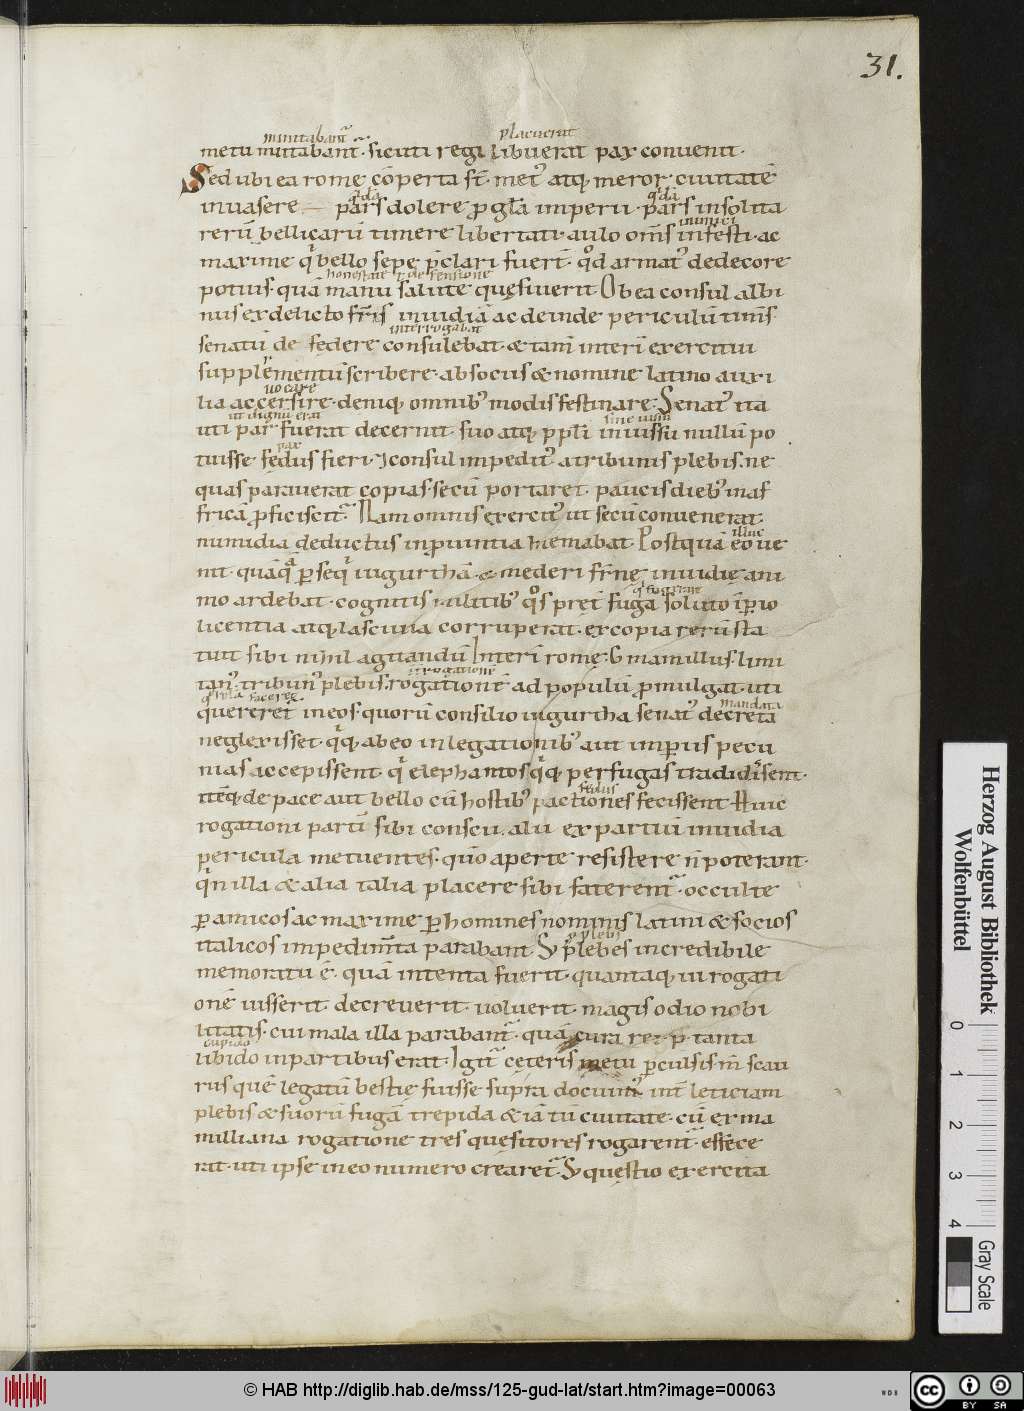 31.
minitabant᷑ placuerat
metu mutabant᷑. sicuti regi libuerat pax conuenit.
Sed ubi ea rome cōperta st̄. met᷒ atq; meror. ciuitatē
q̇dā q̇dā
inuasere pars dolere ꝓ gl̄a imperii. pars insolita
inimici
rerū bellicarū timere libertati. aulo om̄s infesti. ac
maxime q̇ bello sepe p̄clari fuer̄. qd̄ armat᷒ dedecore
honestate ł defensione
potius. quā manu salutē quęsiuerit Ob ea consul albi
nus ex delicto fr̄is inuidiā ac deinde periculū tim̄s.
interrogabat
senatū de federe consulebat. & tam̄ interī exercitui
supplementū scribere. ab sociis & nomine latino auxi
uocare
lia accersire. deniq; omnib᷒ modis festinare. Senat᷒ ita
ut dignū erat sine iussu
uti par fuerat decernit. suo atq; ppl̄i iniussu nullū po
pax
tuisse fedus fieri. consul impedit᷒ a tribunis plebis. ne
quas parauerat copias. secū portaret. paucis dieb᷒ in af
fricā ꝓficiscit᷑. Nam omnis exercit᷒ ut secū conuenerat.
illuc
numidia deductus in ꝓuintia hiemabat. Postquā eo ue
nit. quāq̄ ꝑseq̇ iugurthā. & mederi fr̄nę inuidię ani
mo ardebat. cognitis militib᷒ qͦs p̄ter fugā soluto īꝑio
licentia atq; lasciuia corruperat. ex copia rerū sta
tuit sibi nihil agitandū Interī romę. G mamillus. limi
īrogatione
tan᷒. tribun᷒ plebis. rogationē ad populū ꝓmulgat. uti
mandata
quereret in eos. quorū consilio iugurtha senat᷒ decreta
neglexisset. q̇q; ab eo in legationib᷒ aut imꝑiis pecu
nias accepissent. q̇ elephantos q̇q; perfugas tradidisent.
fedus
itēq; de pace aut bello cū hostib᷒ pactiones fecissent Huic
rogationi partī sibi conscii. alii ex partiū inuidia
pericula metuentes. qm̄ aperte resistere n̄ poterant.
q̇n illa & alia talia placere sibi faterent᷑. occulte
ꝑ amicos ac maxime ꝑ homines nominis latini & socios
italicos impedim̄ta parabant S; plebes incredibile
memoratu ē. quā intenta fuerit. quantaq; ui rogati
onē iusserit. decreuerit. uoluerit. magis odio nobi
litatis. cui mala illa parabant᷑. quā cura rei p. tanta
cupido
libido in partibus erat. Igit᷑ cęteris metu ꝑculsis. m̄ scau
rus quē legatū bestię fuisse supra docuim᷒. int̄ lęticiam
plebis & suorū fugā trepida & iā tū ciuitate. cū ex ma
milliana rogatione tres quęsitores rogarent᷑. effece
rat. uti ipse in eo numero crearet᷑. S; quęstio exercita
Herzog August Bibliothek
Wolfenbüttel
0 1 2 3 4
Gray Scale
© HAB http://diglib.hab.de/mss/125-gud-lat/start.htm?image=00063
WDB
cc BY SA